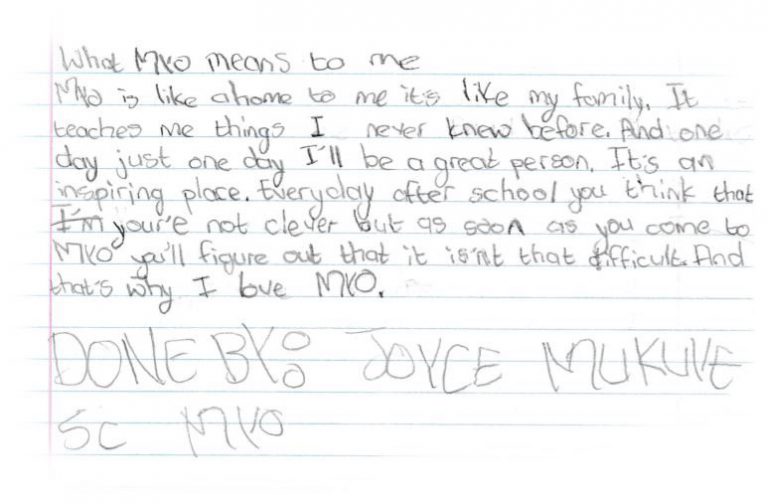 What MKO means to me
MKO is like ahome to me it's like my family. It
teaches me things I never knew before. And one
day just one day I'll be a great person. It's an
inspiring place. Everyday after school you think that
I'm your'e not clever but as soon as you come to
MKO you'll figure out that it isn't that difficult. And
that's why I love MKO.
DONE BY: JOYCE MUKUVE
5C MKO